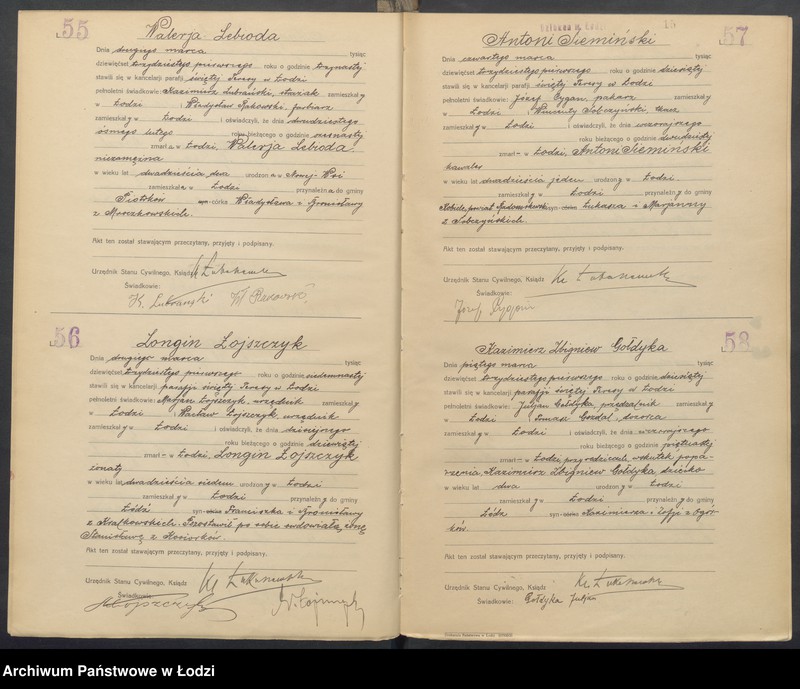 55
Walerja Lebioda
Dnia drugiego marca tysiąc
dziewięćset trzydziestego pierwszego roku o godzinie trzynastej
stawili się w kancelarji parafji świętej Teresy w Łodzi
pełnoletni świadkowie: Kazimierz Lubrański, stróżak zamieszkały
w Łodzi i Władysław Rakowski, farbiarz
zamieszkały w Łodzi i oświadczyli, że dnia dwudziestego
ósmego lutego roku bieżącego o godzinie szesnastej
zmarła w Łodzi, Walerja Lebioda
niezamężna
w wieku lat dwadzieścia dwa urodzona w Nowej-Wsi
zamieszkała w Łodzi przynależna do gminy
Piotrków syn-córka Władysława i Bronisławy
z Mroczkowskich.
Akt ten został stawającym przeczytany, przyjęty i podpisany.
Urzędnik Stanu Cywilnego, Ksiądz
Świadkowie:
K. Lubrański
56
Longin Łojszczyk
Dnia drugiego marca tysiąc
dziewięćset trzydziestego pierwszego roku o godzinie siedemnastej
stawili się w kancelarji parafji świętej Teresy w Łodzi
pełnoletni świadkowie: Marjan Łojszczyk, urzędnik zamieszkały
w Łodzi i Wacław Łojszczyk, urzędnik
zamieszkały w Łodzi i oświadczyli, że dnia dzisiejszego
roku bieżącego o godzinie dziewiątej
zmarł w Łodzi, Longin Łojszczyk
żonaty
w wieku lat dwadzieścia siedem urodzony w Łodzi
zamieszkały w Łodzi przynależny do gminy
Łódź syn-córka Franciszka i Bronisławy
z Kralkowskich. Pozostawił po sobie owdowiałą żonę
Stanisławę z Kosiorków.
Akt ten został stawającym przeczytany, przyjęty i podpisany.
Urzędnik Stanu Cywilnego, Ksiądz
Świadkowie:
57
Antoni Siemiński
Dnia czwartego marca tysiąc
dziewięćset trzydziestego pierwszego roku o godzinie dziewiątej
stawili się w kancelarji parafji świętej Teresy w Łodzi
pełnoletni świadkowie: Józef Cygan, piekarz zamieszkały
w Łodzi i Wincenty Sobczyński, tkacz
zamieszkały w Łodzi i oświadczyli, że dnia wczorajszego
roku bieżącego o godzinie dwudziestej
zmarł w Łodzi, Antoni Siemiński
kawaler
w wieku lat dwadzieścia jeden urodzony w Łodzi.
zamieszkały w Łodzi przynależny do gminy
Kobiele, powiat Radomszczański syn-córka Łukasza i Marjanny
z Sobczyńskich.
Akt ten został stawającym przeczytany, przyjęty i podpisany.
Urzędnik Stanu Cywilnego, Ksiądz
Świadkowie:
Józef Cygan
58
Kazimierz Zbigniew Gołdyka
Dnia piątego marca tysiąc
dziewięćset trzydziestego pierwszego roku o godzinie dziesiątej
stawili się w kancelarji parafji świętej Teresy w Łodzi
pełnoletni świadkowie: Juljan Gołdyka, przędzalnik zamieszkały
w Łodzi i Tomasz Gozdal, dozorca
zamieszkały w Łodzi i oświadczyli, że dnia wczorajszego
roku bieżącego o godzinie piętnastej
zmarł w Łodzi, przy rodzicach, wskutek popa-
rzenia Kazimierz Zbigniew Gołdyka dziecko
w wieku lat dwa urodzony w Łodzi
zamieszkały w Łodzi przynależny do gminy
Łódź syn-córka Kazimierza i Zofji z Ogór-
ków
Akt ten został stawającym przeczytany, przyjęty i podpisany.
Urzędnik Stanu Cywilnego, Ksiądz
Świadkowie: Gołdyka Juljan
Archiwum Państwowe w Łodzi